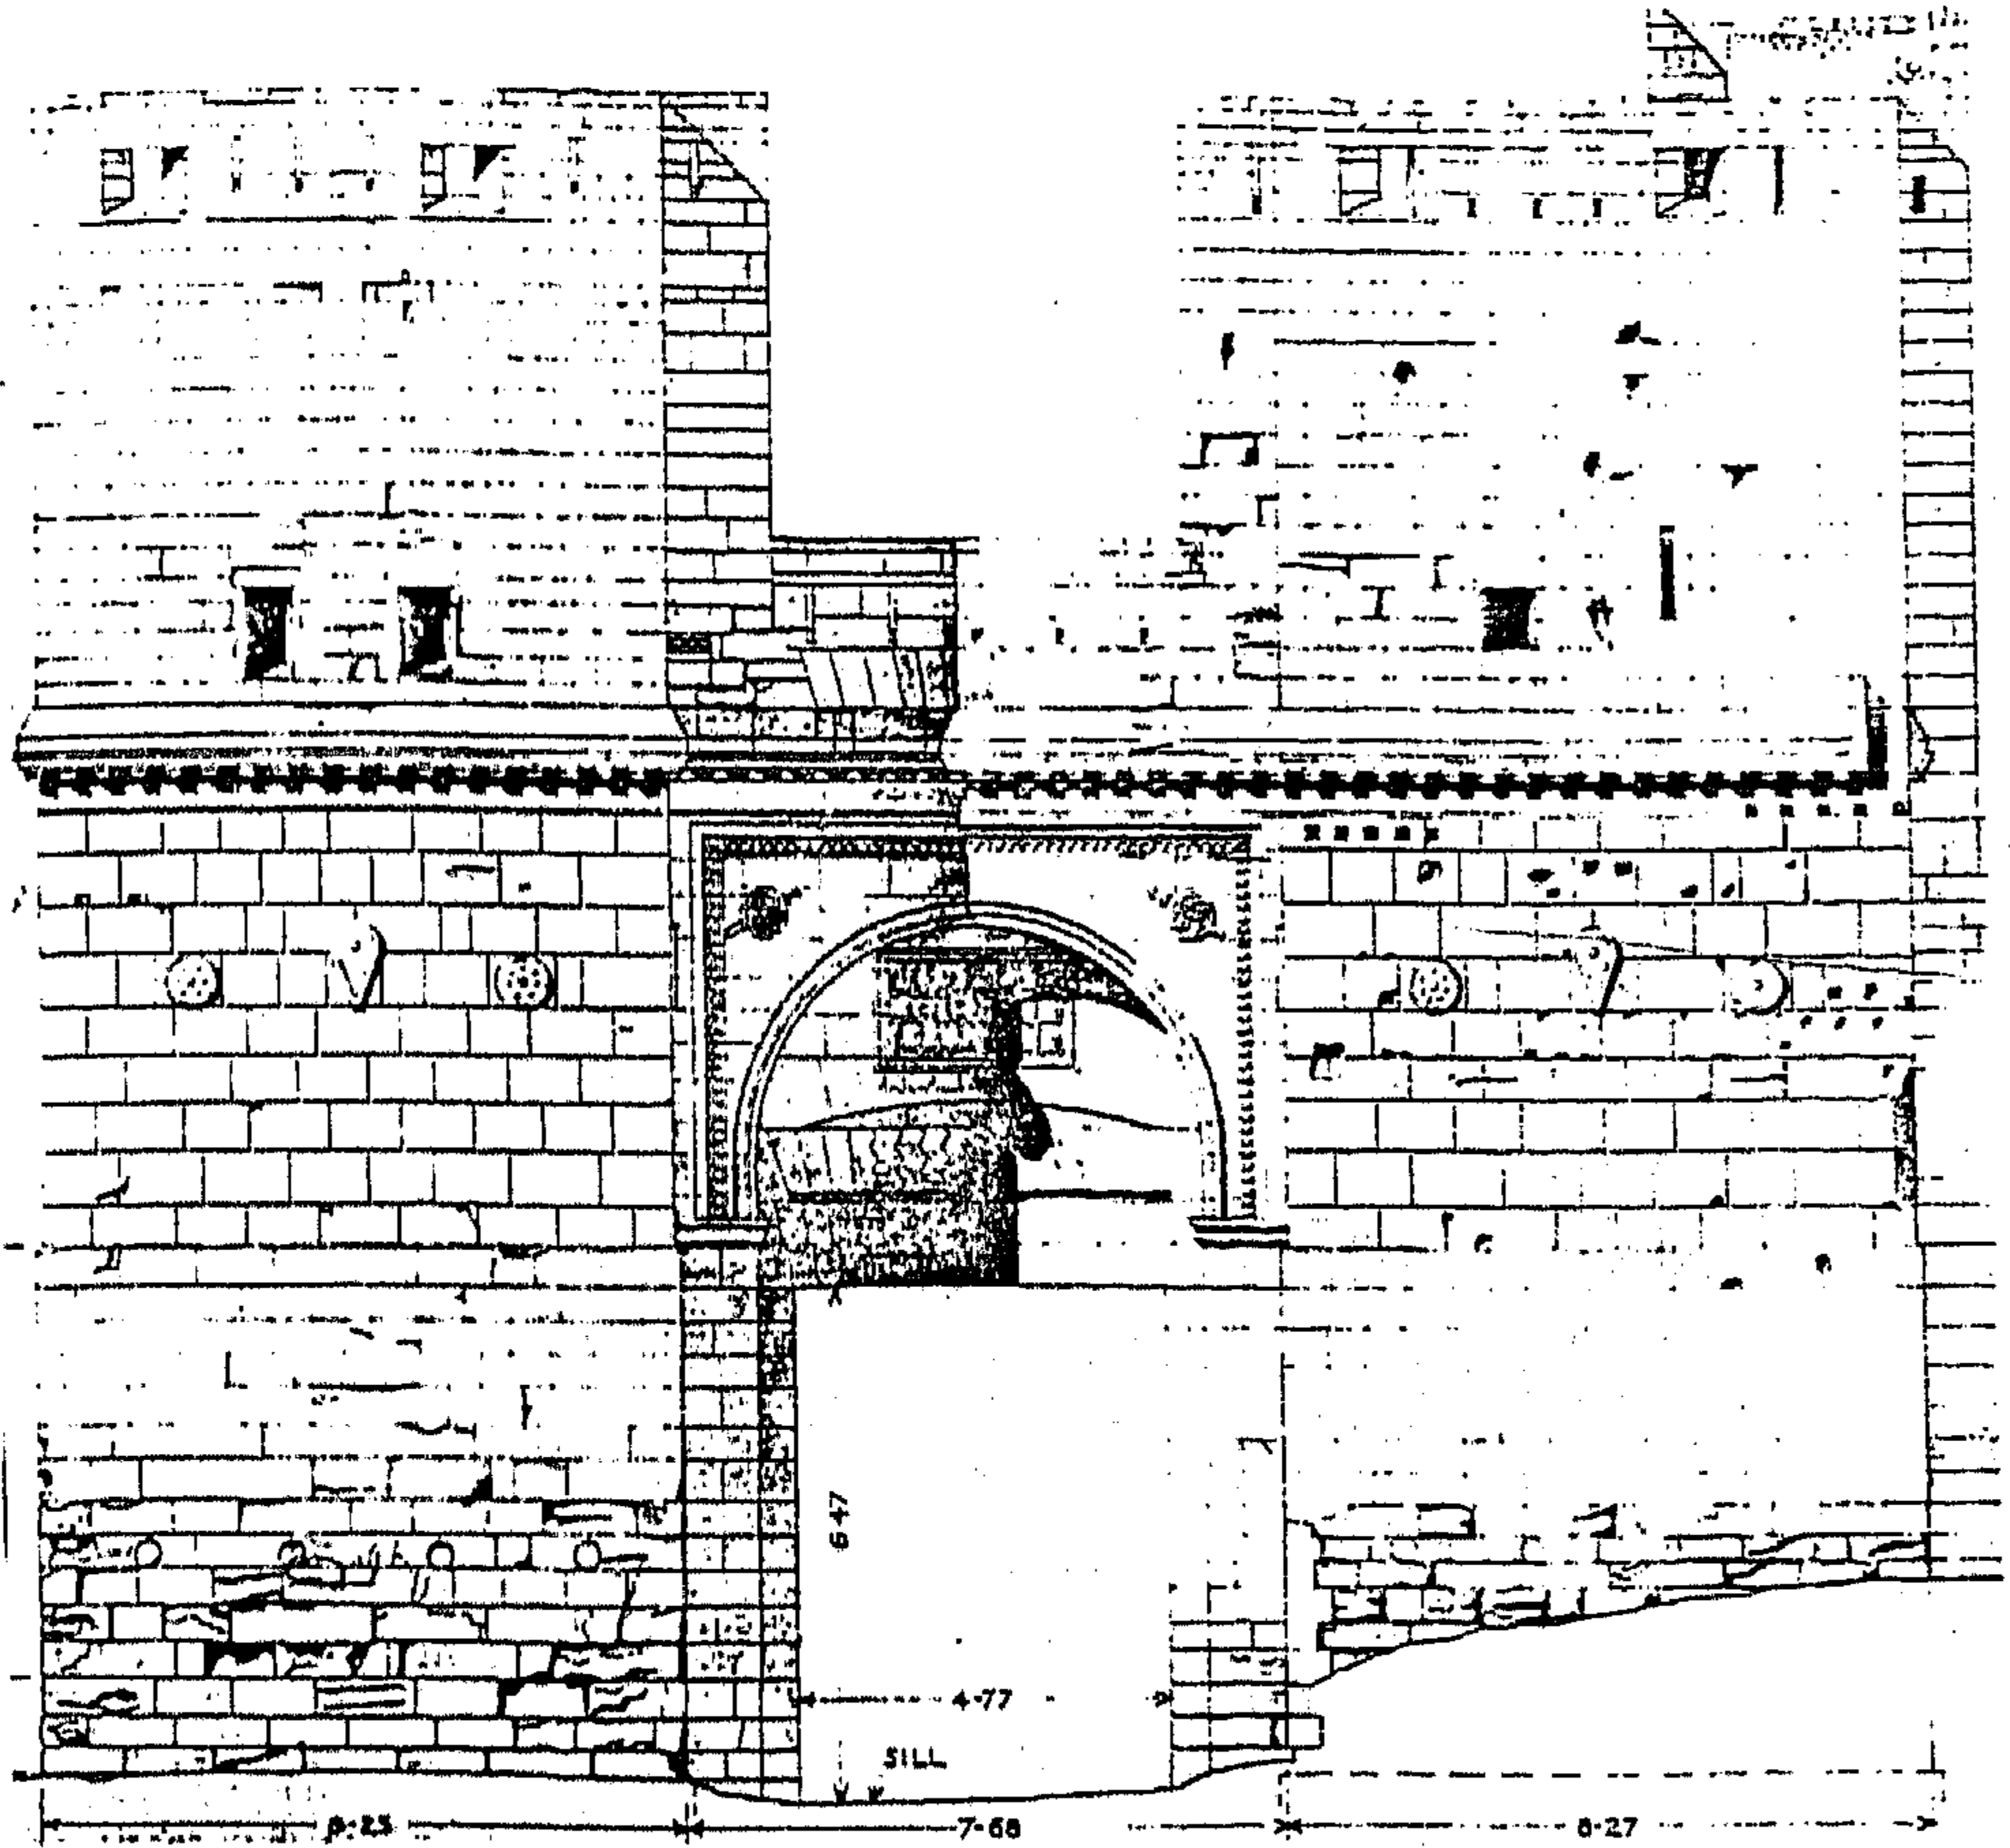 6·47
4·77
SILL
8·25
7·68
8·27